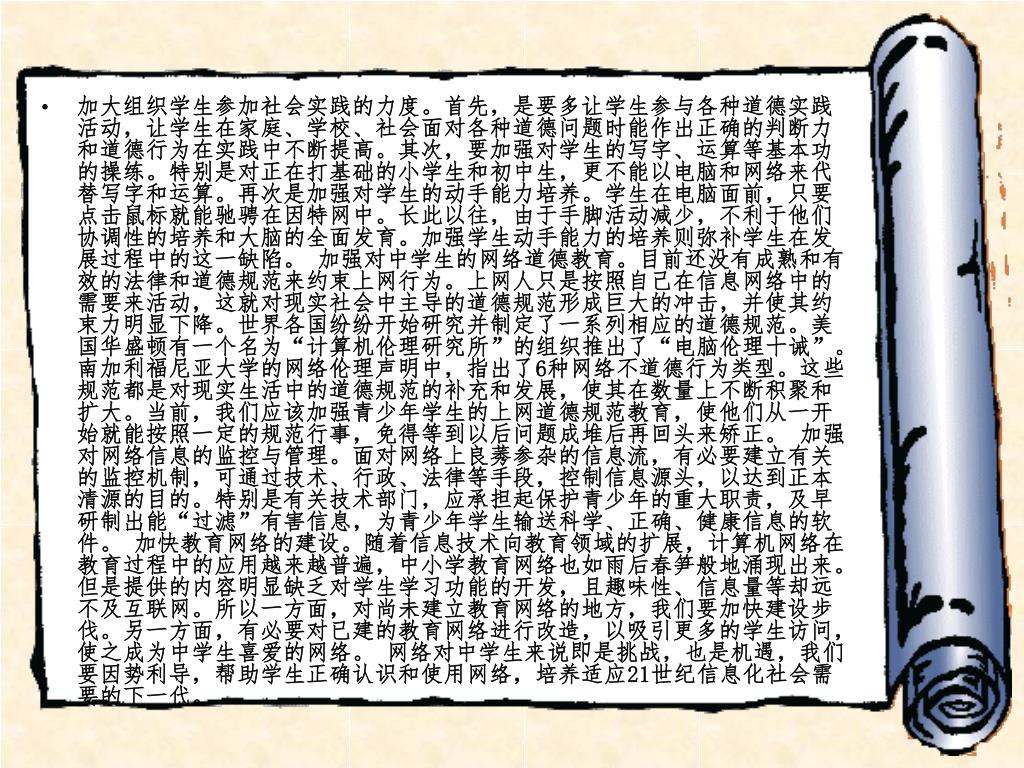 • 加大组织学生参加社会实践的力度。首先，是要多让学生参与各种道德实践
活动，让学生在家庭、学校、社会面对各种道德问题时能作出正确的判断力
和道德行为在实践中不断提高。其次，要加强对学生的写字、运算等基本功
的操练。特别是对正在打基础的小学生和初中生，更不能以电脑和网络来代
替写字和运算。再次是加强对学生的动手能力培养。学生在电脑面前，只要
点击鼠标就能驰骋在因特网中。长此以往，由于手脚活动减少，不利于他们
协调性的培养和大脑的全面发育。加强学生动手能力的培养则弥补学生在发
展过程中的这一缺陷。 加强对中学生的网络道德教育。目前还没有成熟和有
效的法律和道德规范来约束上网行为。上网人只是按照自己在信息网络中的
需要来活动，这就对现实社会中主导的道德规范形成巨大的冲击，并使其约
束力明显下降。世界各国纷纷开始研究并制定了一系列相应的道德规范。美
国华盛顿有一个名为“计算机伦理研究所”的组织推出了“电脑伦理十诫”。
南加利福尼亚大学的网络伦理声明中，指出了6种网络不道德行为类型。这些
规范都是对现实生活中的道德规范的补充和发展，使其在数量上不断积聚和
扩大。当前，我们应该加强青少年学生的上网道德规范教育，使他们从一开
始就能按照一定的规范行事，免得等到以后问题成堆后再回头来矫正。 加强
对网络信息的监控与管理。面对网络上良莠参杂的信息流，有必要建立有关
的监控机制，可通过技术、行政、法律等手段，控制信息源头，以达到正本
清源的目的。特别是有关技术部门，应承担起保护青少年的重大职责，及早
研制出能“过滤”有害信息，为青少年学生输送科学、正确、健康信息的软
件。 加快教育网络的建设。随着信息技术向教育领域的扩展，计算机网络在
教育过程中的应用越来越普遍，中小学教育网络也如雨后春笋般地涌现出来。
但是提供的内容明显缺乏对学生学习功能的开发，且趣味性、信息量等却远
不及互联网。所以一方面，对尚未建立教育网络的地方，我们要加快建设步
伐。另一方面，有必要对已建的教育网络进行改造，以吸引更多的学生访问，
使之成为中学生喜爱的网络。 网络对中学生来说即是挑战，也是机遇，我们
要因势利导，帮助学生正确认识和使用网络，培养适应21世纪信息化社会需
要的下一代。